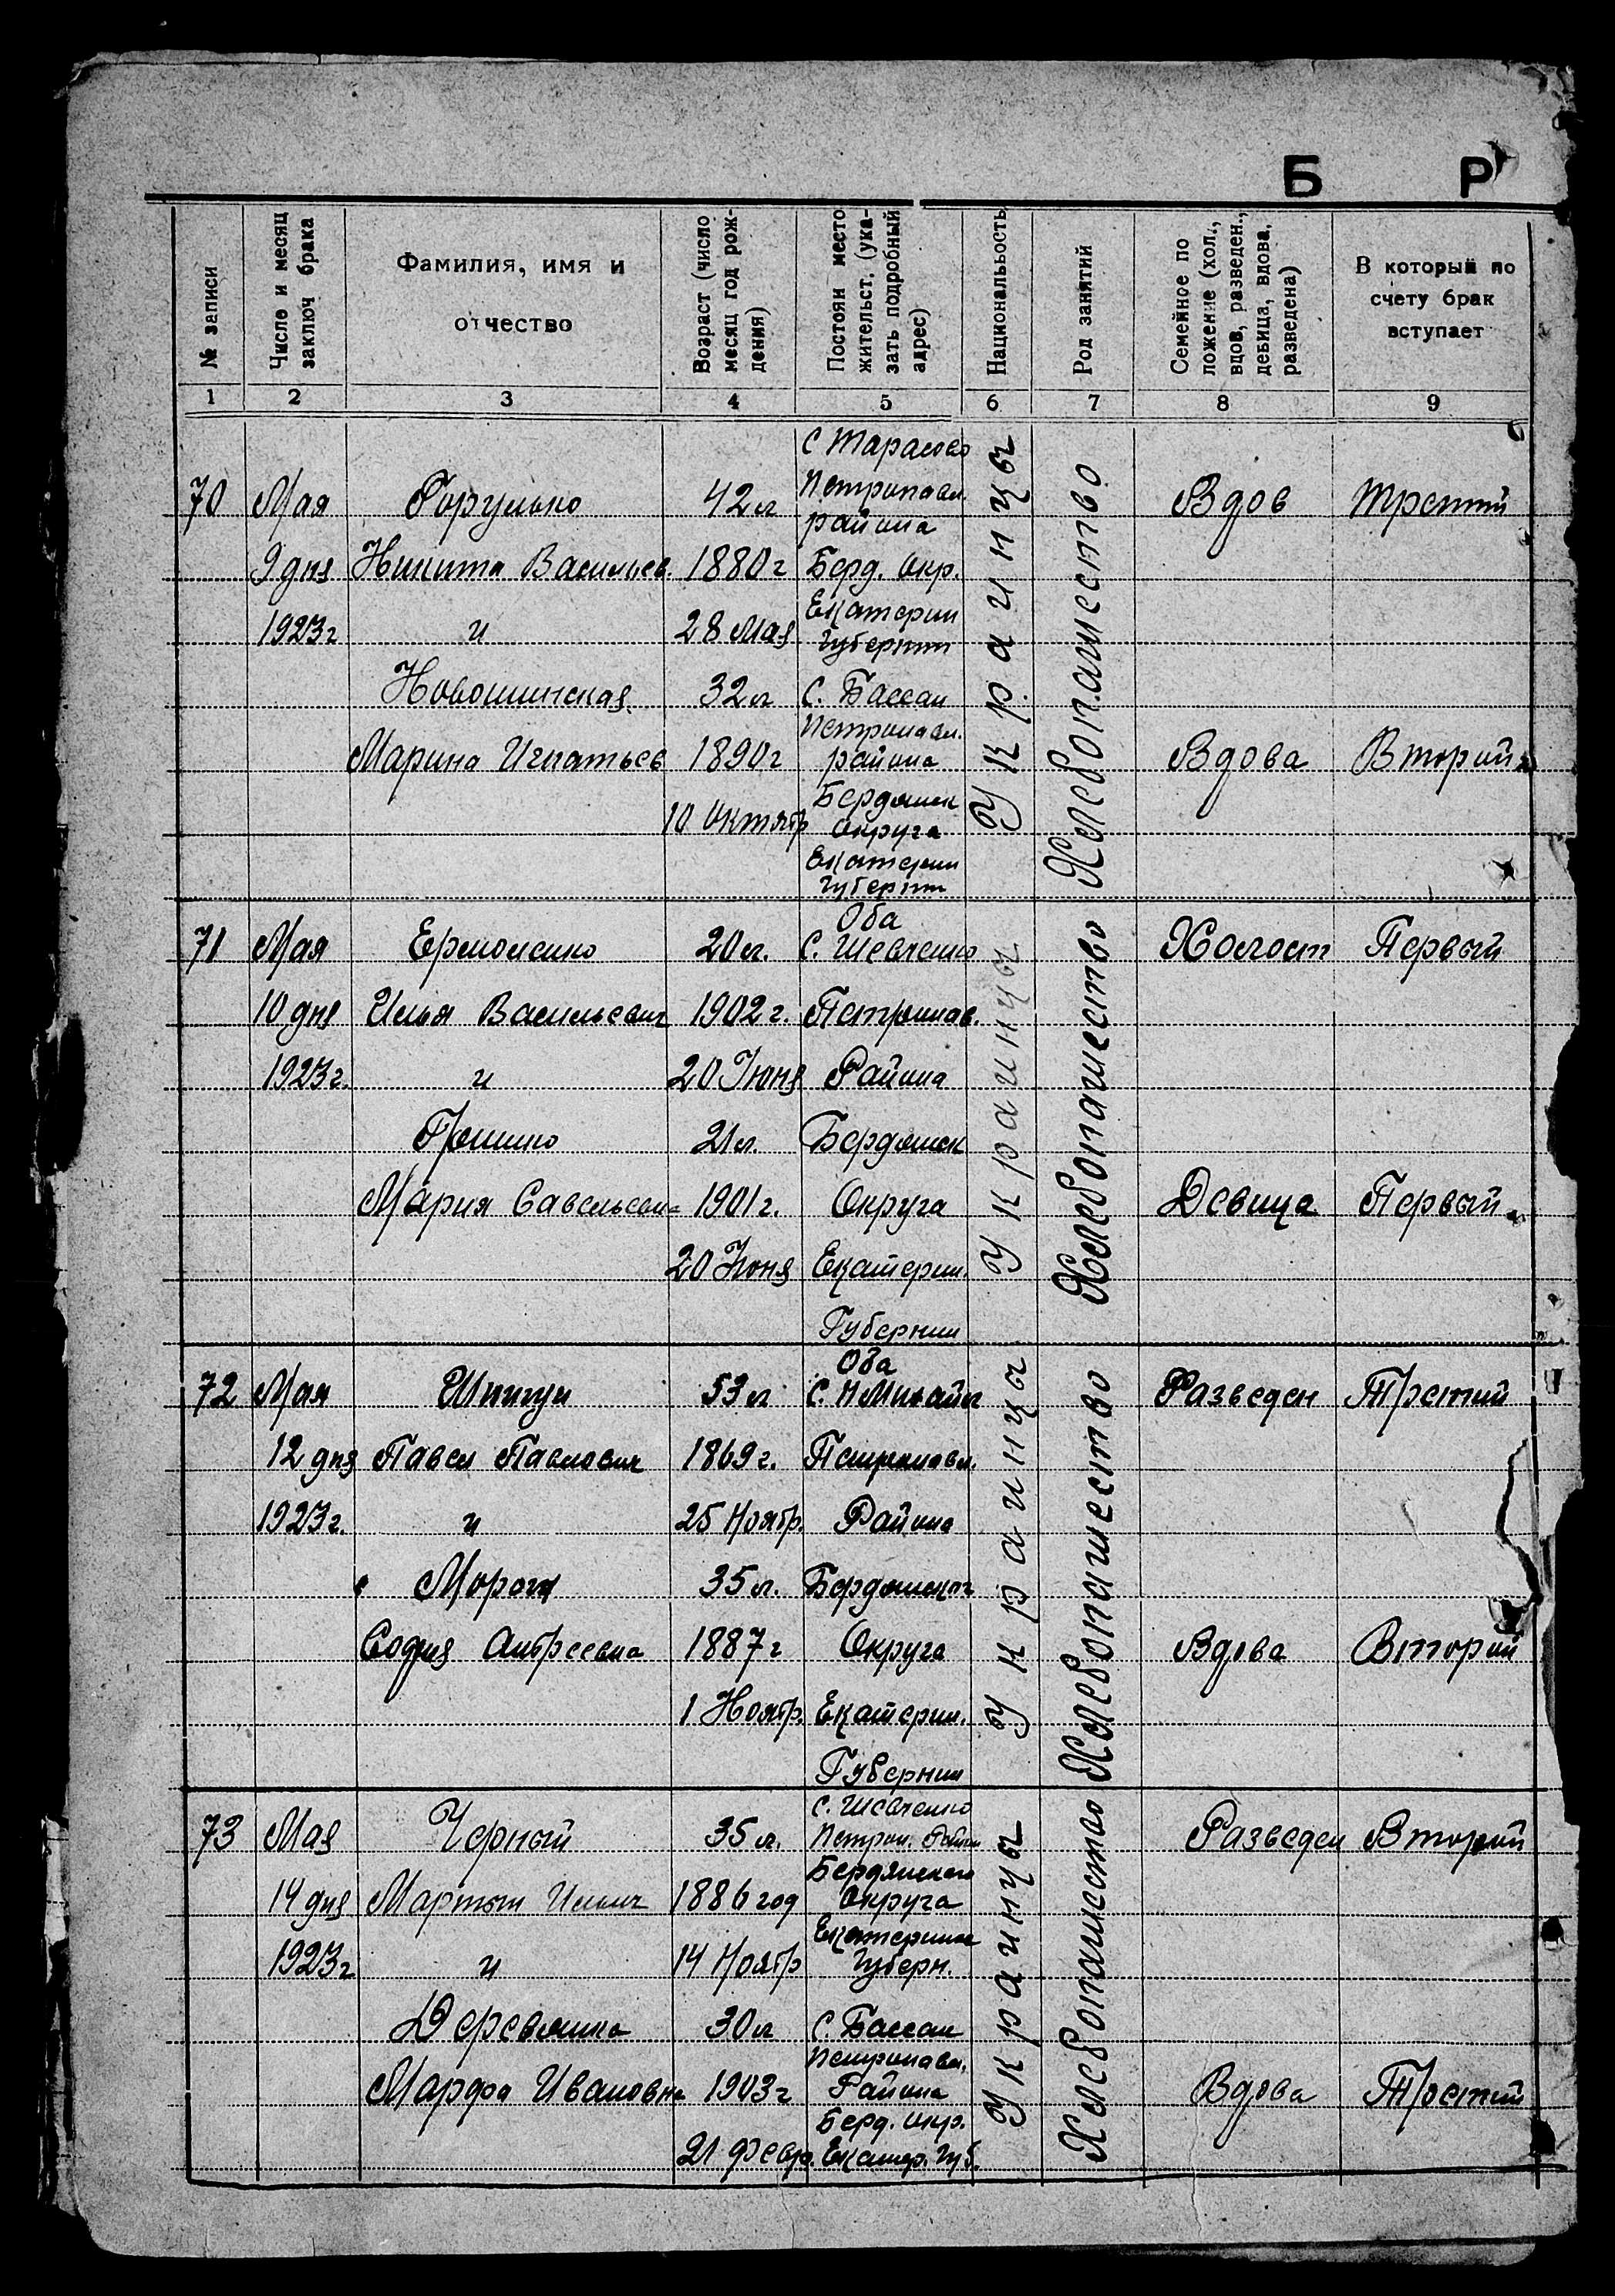 Б Р
№ записи
Число и месяц заключ брака
Фамилия, имя и отчество
Возраст (число месяц год рождения)
Постоян место жительст. (указать подробный адрес)
Национальность
Род занятий
Семейное положение (хол., вдов, разведен., девица, вдова, разведена)
В который по счету брак вступает
1 2 3 4 5 6 7 8 9
С Тарасово
70 Мая Горулько 42 л Петропавл. Вдов Третий
района
9 дня Никита Васильев. 1880 г Берд. Окр.
Екатерин
1923 г и 28 Мая Губернии
Украинцы
Хлебопашество
32 л С. Бассан
Петропавл.
Марина Игнатьев 1890 г района Вдова Второй
Бердянск
10 Октябр Округа
Екатерин
Губернии
Оба
71 Мая Ермоленко 20 л. С. Шевченко Холост Первый
10 дня Илья Васильевич 1902 г. Петропав.
1923 г. и 20 Июня Района
Украинцы
Хлебопашество
21 л. Бердянск
Мария Савельевна 1901 г. Округа Девица Первый
20 Июня Екатерин.
Губернии
Оба
72 Мая 53 л С. НМихайл Разведен Третий
12 дня Павел Павлович 1869 г. Петропавл.
1923 г. и 25 Ноябр. Района
Украинцы
Хлебопашество
35 л. Бердянског
София Андреевна 1887 г Округа Вдова Второй
1 Ноябр. Екатерин.
Губернии
С. Шевченко
73 Мая Черный 35 л. Петроп. Район Разведен Второй
Бердянского
14 дня Мартын Ильич 1886 год Округа
Екатерин
1923 г и 14 Ноябр Губерн.
Украинцы
Хлебопашество
Деревянко 30 л С. Бассан
Петропавл.
Марфа Ивановна 1903 г Района Вдова Третий
Берд. окр.
21 Февр. Екатер. Губ.